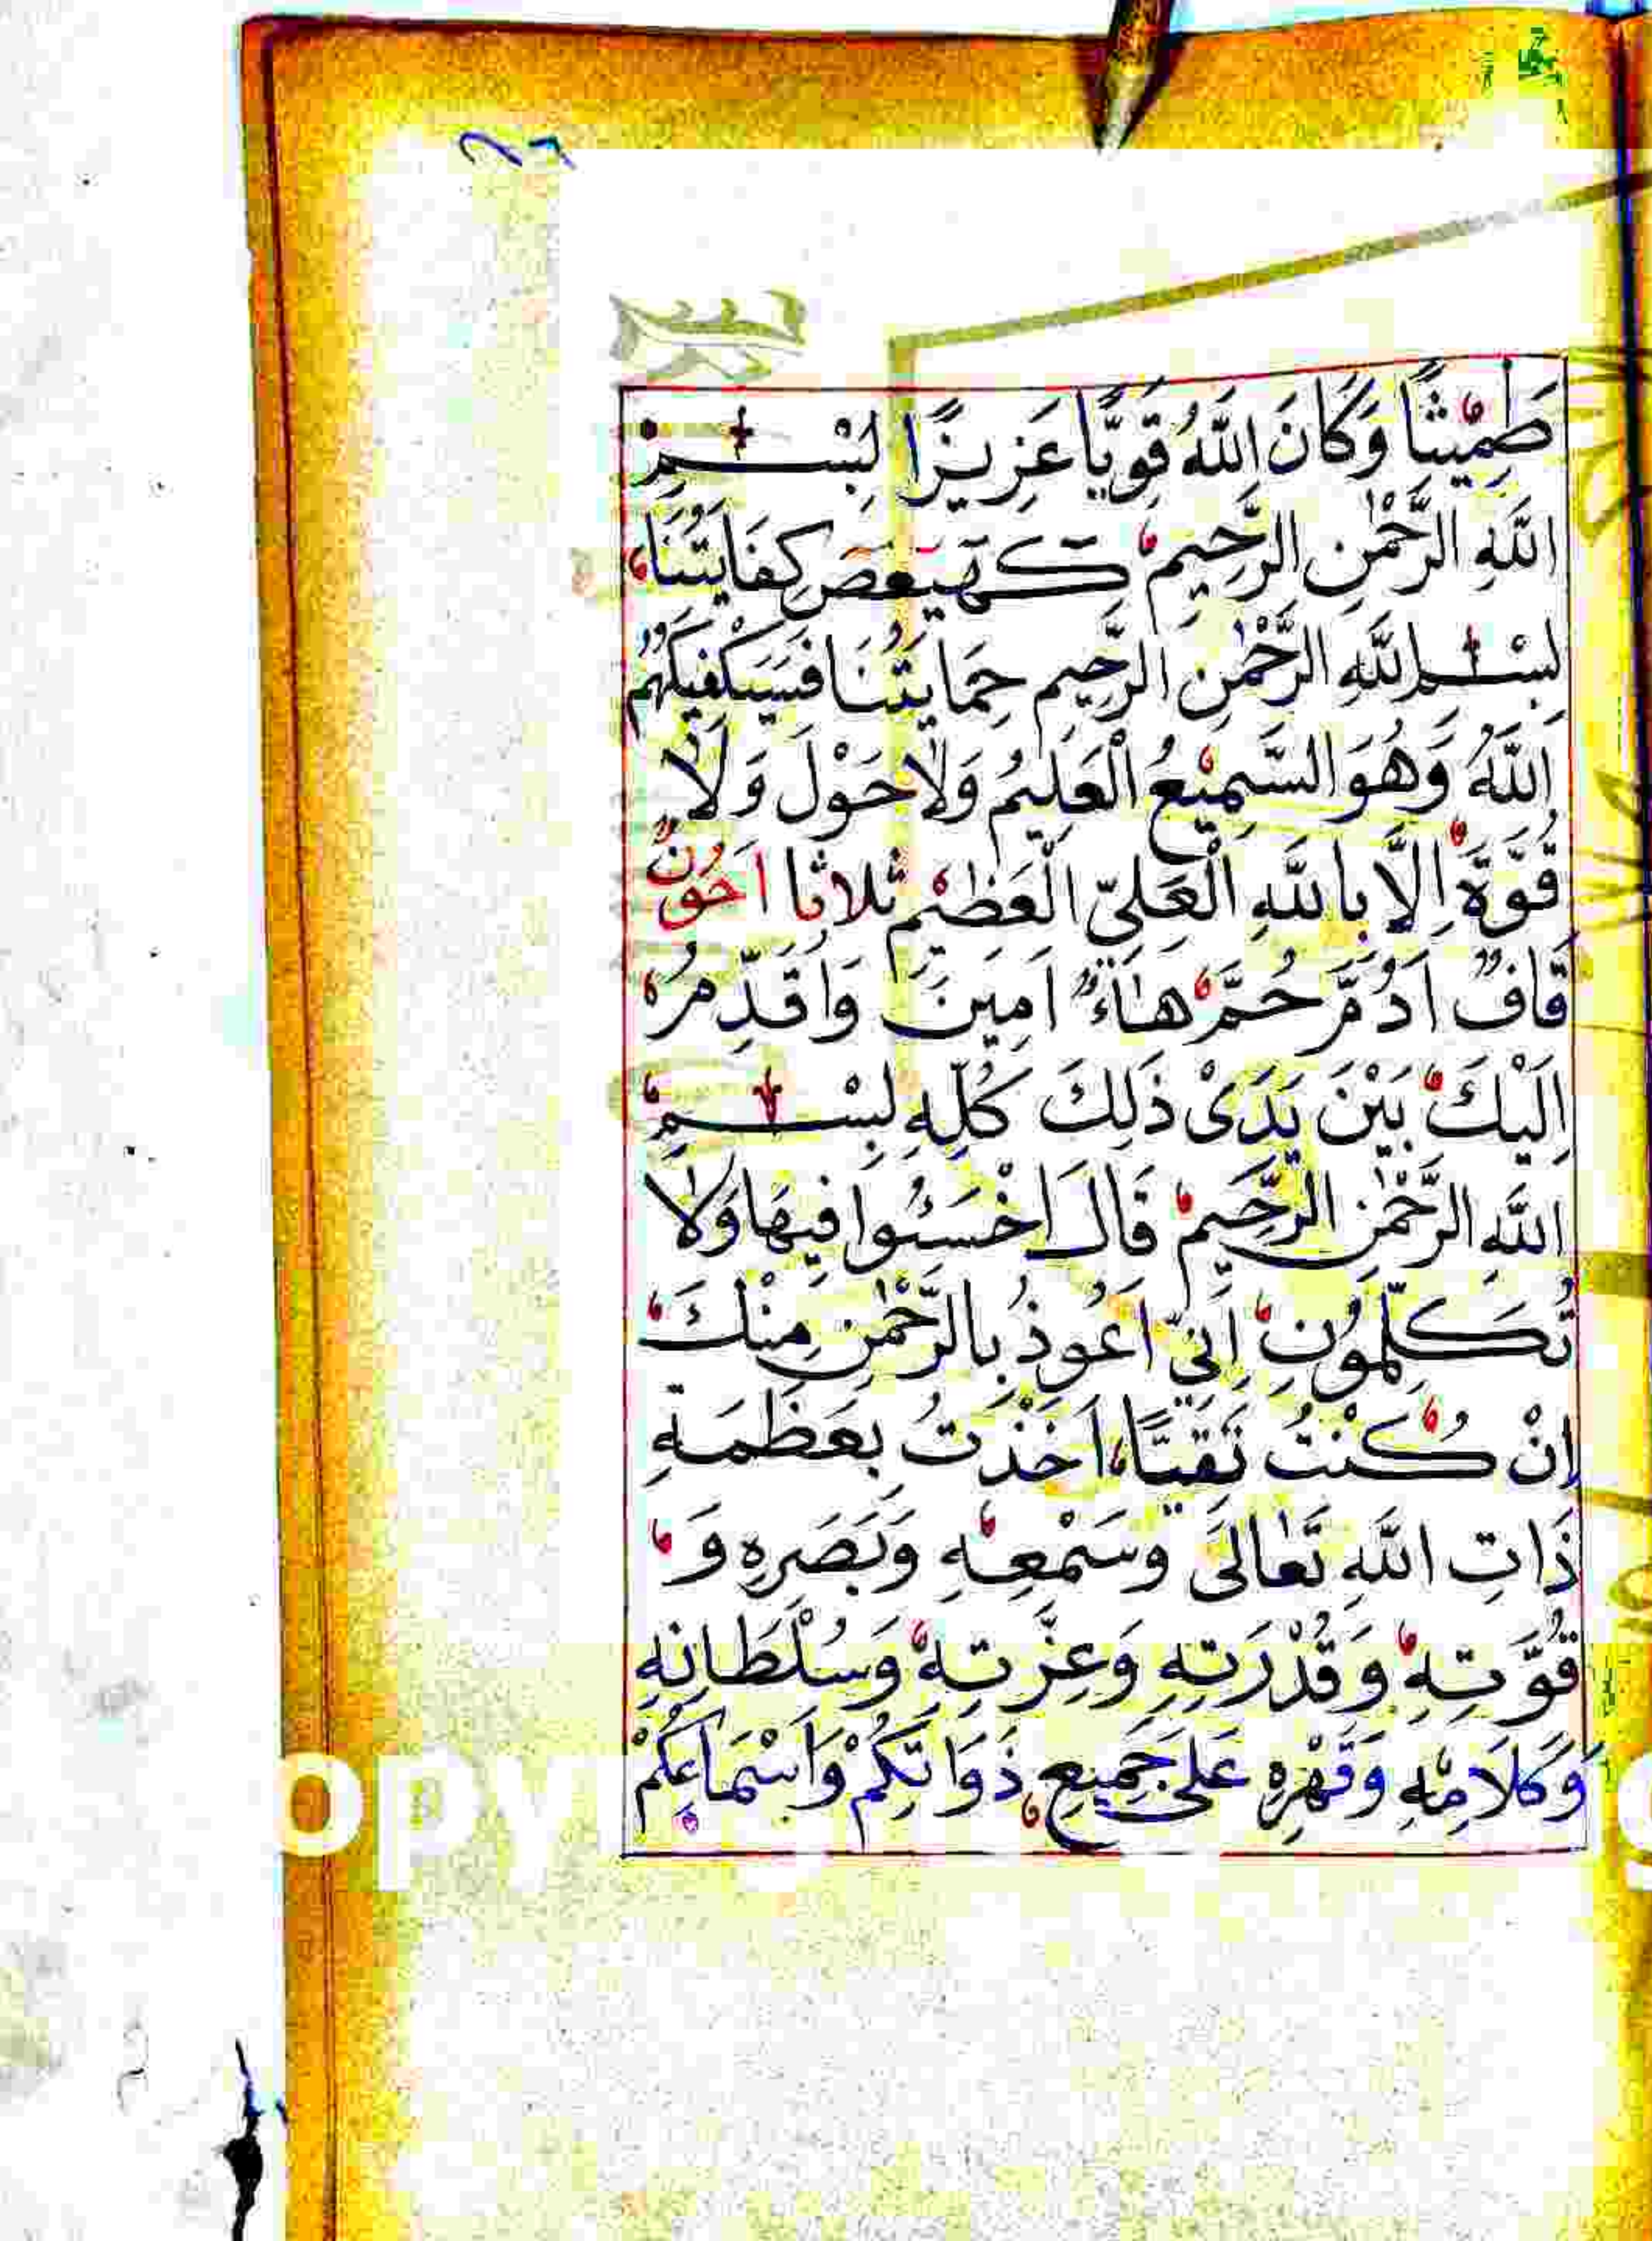 طَمِيْثًا وَكَانَ اللّٰهُ قَوِيًّا عَزِيزًا بِسْمِ
اللّٰهِ الرَّحْمٰنِ الرَّحِيمِ كٓهٰيٰعٓصٓ كِفَايَتُنَا
بِسْمِ اللّٰهِ الرَّحْمٰنِ الرَّحِيمِ حِمَايَتُنَا فَسَيَكْفِيكَهُمُ
اللّٰهُ وَهُوَ السَّمِيْعُ الْعَلِيْمُ وَلَا حَوْلَ وَلَا
قُوَّةَ اِلَّا بِاللّٰهِ الْعَلِيِّ الْعَظِيْمِ ثلاثا اَحُوْنٌ
قَافٌ اَدُمَّ حُمَّ هَاءٌ اٰمِينَ وَاُقَدِّمُ
اِلَيْكَ بَيْنَ يَدَيْ ذَلِكَ كُلِّهِ بِسْمِ
اللّٰهِ الرَّحْمٰنِ الرَّحِيمِ قَالَ اخْسَئُوا فِيهَا وَلَا
تُكَلِّمُونِ اِنِّي اَعُوذُ بِالرَّحْمٰنِ مِنْكَ
اِنْ كُنْتَ تَقِيًّا اَخَذْتُ بِعَظَمَةِ
ذَاتِ اللّٰهِ تَعَالَى وَسَمْعِهِ وَبَصَرِهِ وَ
قُوَّتِهِ وَقُدْرَتِهِ وَعِزَّتِهِ وَسُلْطَانِهِ
وَكَلَامِهِ وَقَهْرِهِ عَلَى جَمِيعِ ذَوَاتِكُمْ وَاَسْمَائِكُمْ
opy